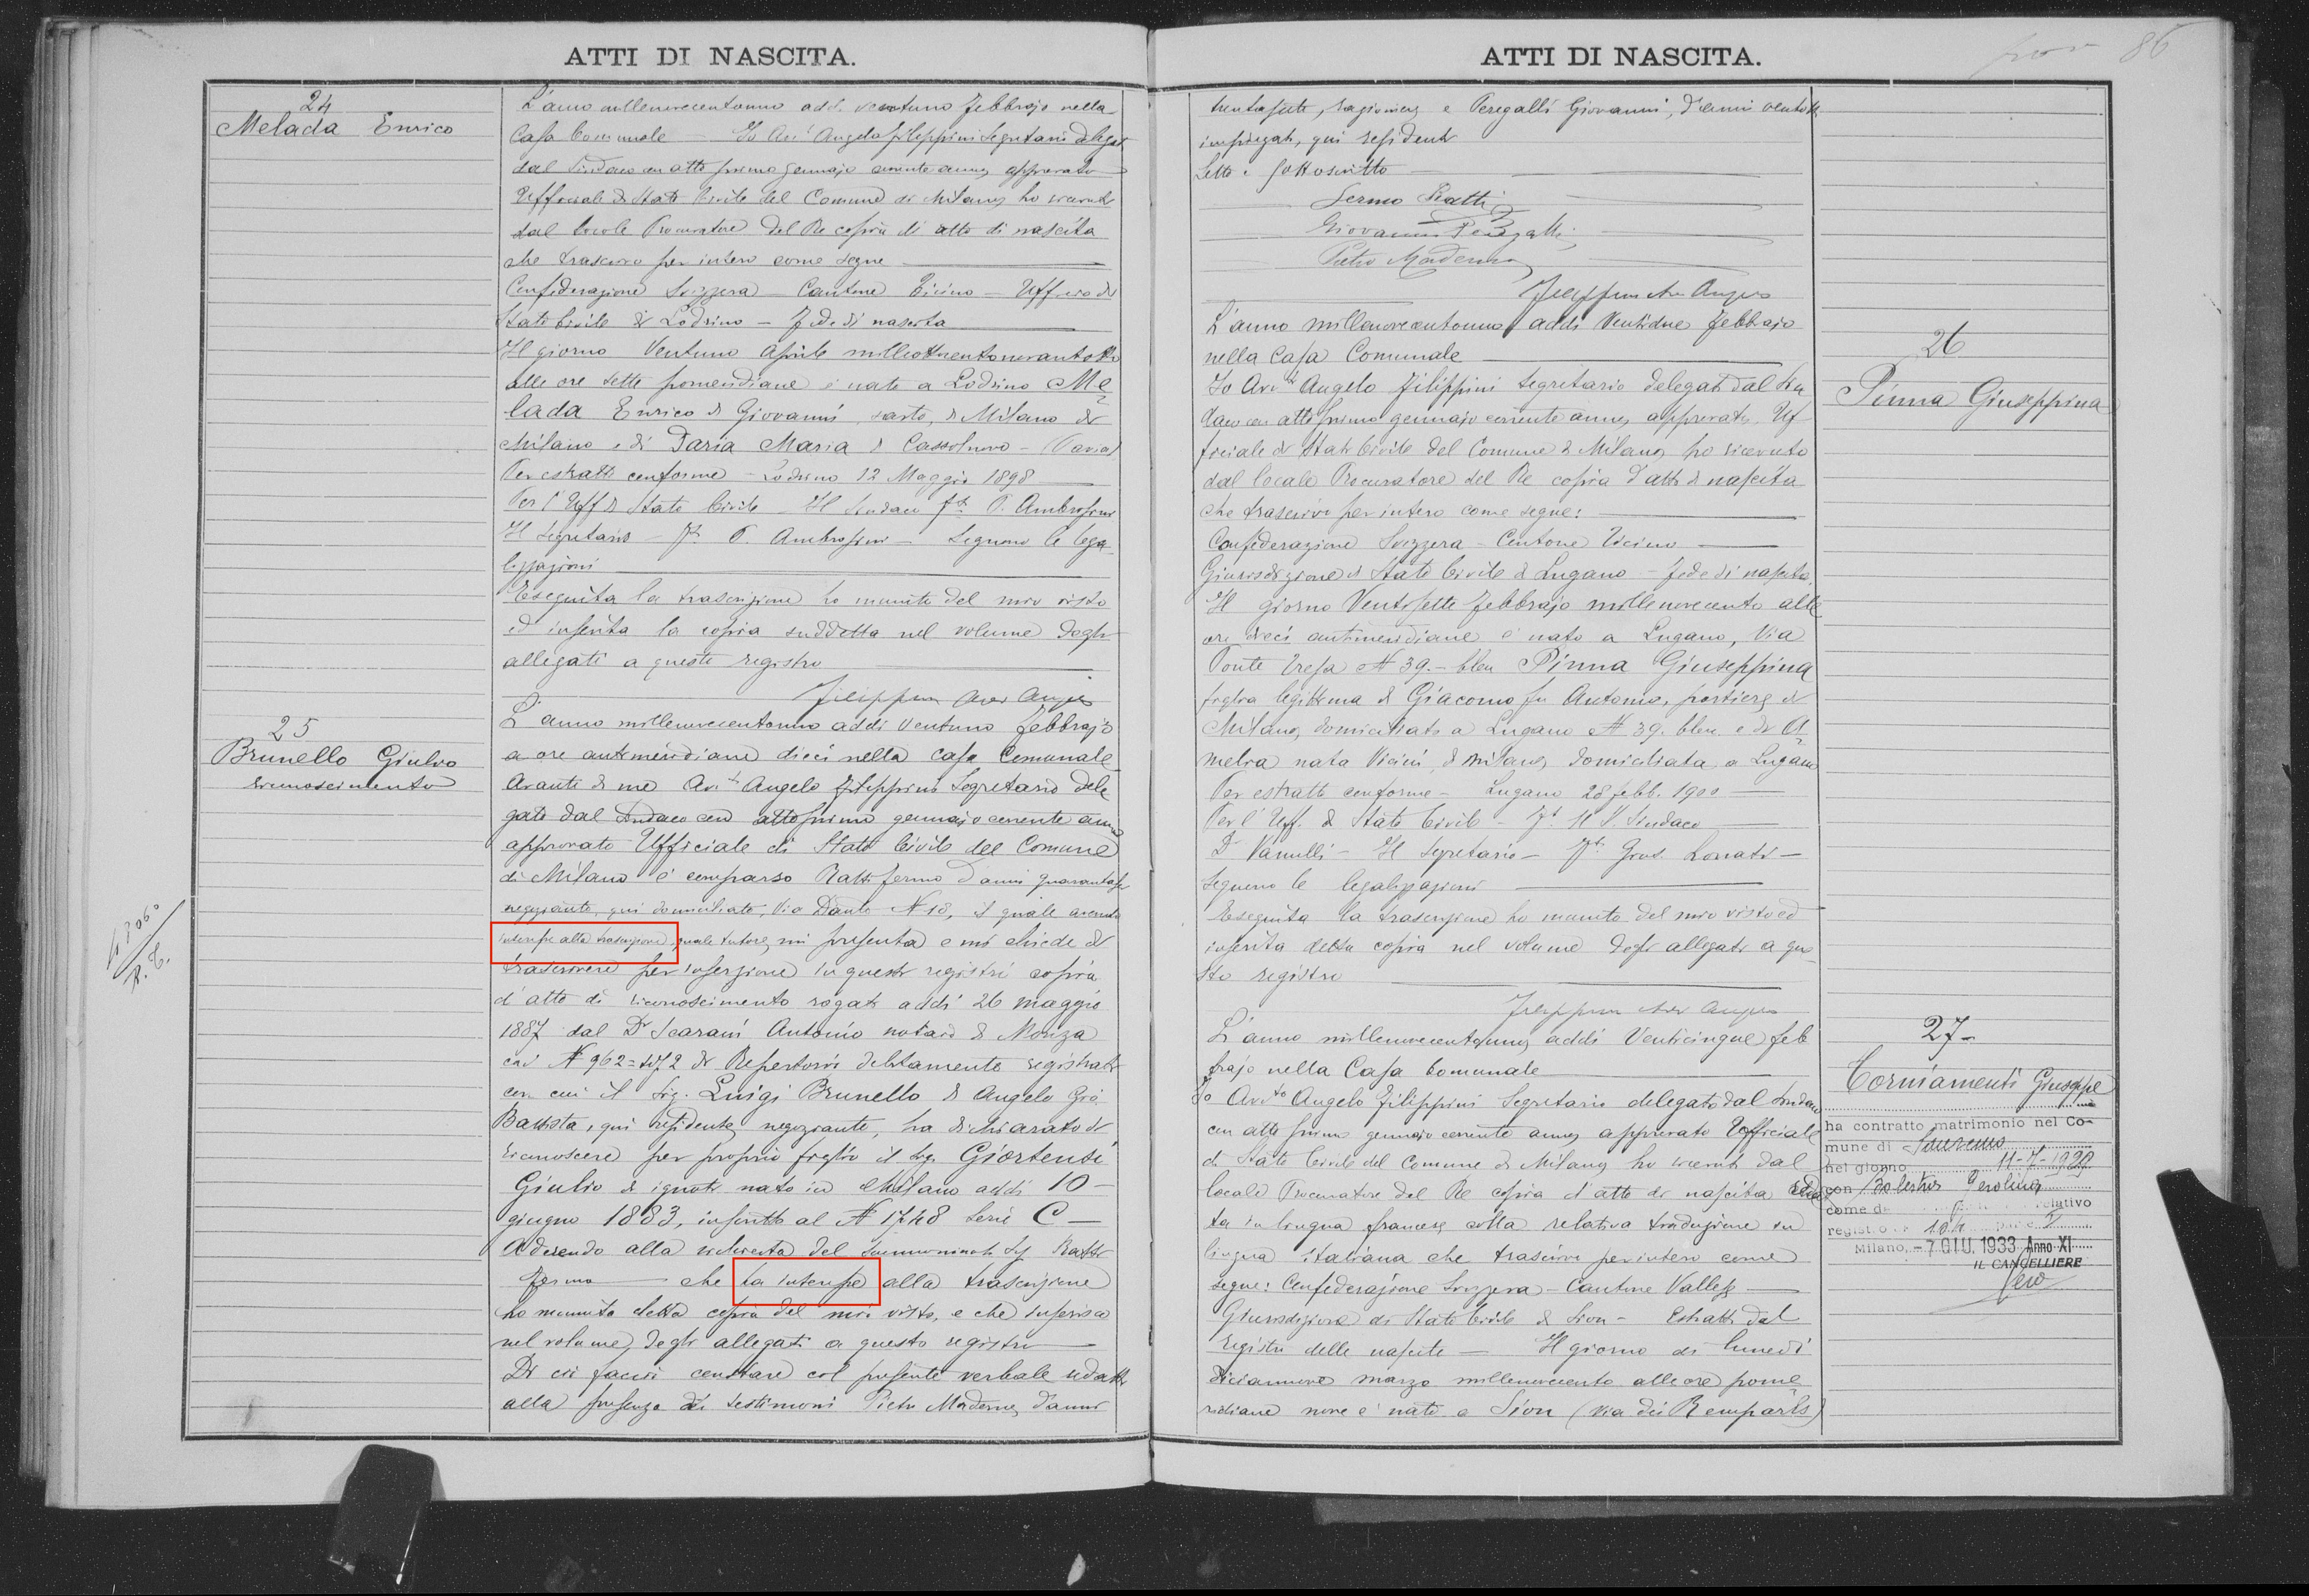 ATTI DI NASCITA.
24
Melada Enrico
L'anno millenovecentouno addì ventuno Febbrajo nella
Casa Comunale Io Avv. Angelo Filippini Segretario delegato
dal Sindaco con atto primo gennajo corrente anno, approvato
Ufficiale di Stato Civile del Comune di Milano, ho ricevuto
dal locale Procuratore del Re copia di atto di nascita
che trascrivo per intero come segue
Confederazione Svizzera - Cantone Ticino - Ufficio di
Stato Civile di Lodrino - Fede di nascita
Il giorno Ventuno Aprile milleottocentonovantotto
alle ore sette pomeridiane è nato a Lodrino Me
lada Enrico di Giovanni, sarto, di Milano di
Milano e di Daria Maria di Cassolnovo - (Pavia)
Per estratto conforme - Lodrino 12 Maggio 1898
Per l'Uff di Stato Civile - Il Sindaco ft. P. Ambrosini
Il Segretario - ft. P. Ambrosini - Seguono le lega
lizzazioni
Eseguita la trascrizione ho munito del mio visto
ed inserita la copia suddetta nel volume degli
allegati a questo registro
Filippini Avv Angelo
25
Brunello Giulio
riconoscimento
L'anno millenovecentouno addì ventuno Febbrajo
a ore antimeridiane dieci nella casa Comunale
Avanti di me Avv. Angelo Filippini Segretario dele
gato dal Sindaco con atto primo gennajo corrente anno
approvato Ufficiale di Stato Civile del Comune
di Milano è comparso Ratti Fermo d'anni quarantasei
negoziante, qui domiciliato, Via Dante N 18, il quale avendo
interesse alla trascrizione quale tutore, mi presenta e mi chiede di
trascrivere per inserzione in questi registri copia
d'atto di riconoscimento rogato addì 26 maggio
1887 dal Dr Scarani Antonio notaio di Monza
coi N 962 = di Repertorio debitamente registrato
con cui il Sig. Luigi Brunello di Angelo Gio
Battista, qui residente, negoziante, ha dichiarato di
riconoscere per proprio figlio il Sig. Giortensi
Giulio di ignoti nato in Milano addì 10 -
giugno 1883, inscritto al N 1748 Serie C -
Aderendo alla richiesta del summominato Sig Ratti
Fermo che ha interesse alla trascrizione
ho munito detta copia del mio visto, e che inserisco
nel volume degli allegati a questo registro
Di ciò faccio constare col presente verbale redatto
alla presenza dei testimoni Pietro Maderna, d'anni
4 2060
R. C.
ATTI DI NASCITA.
86
trentasette, ragioniere e Peregalli Giovanni, d'anni ventotto
impiegato, qui residenti
Letto e sottoscritto
Fermo Ratti
Giovanni Peregalli
Pietro Maderna
Filippini Avv Angelo
26
Pinna Giuseppina
L'anno millenovecentouno addì Ventidue Febbrajo
nella Casa Comunale
Io Avv.to Angelo Filippini Segretario delegato dal Sin
daco con atto primo gennajo corrente anno, approvato, Uf
ficiale di Stato Civile del Comune di Milano, ho ricevuto
dal locale Procuratore del Re copia d'atto di nascita
che trascrivo per intero come segue:
Confederazione Svizzera - Cantone Ticino
Giurisdizione di Stato Civile di Lugano - Fede di nascita.
Il giorno Ventisette Febbrajo millenovecento alle
ore dieci antimeridiane è nato a Lugano, Via
Ponte Tresa N 39. - bleu Pinna Giuseppina
figlia legittima di Giacomo fu Antonio, portiere di
Milano, domiciliato a Lugano N 39. bleu e di A
melia nata Vicini, di Milano, domiciliata a Lugano
Per estratto conforme - Lugano 28 febb. 1900
Per l'Uff. di Stato Civile - ft Il V. Sindaco
Dr Vanulli - Il Segretario - ft Giov. Lonati -
Seguono le legalizzazioni
Eseguita la trascrizione ho munito del mio visto ed
inserita detta copia nel volume degli allegati a que
sto registro
Filippini Avv Angelo
27 -
Torniamenti Giuseppe
L'anno millenovecentouno addì Venticinque feb
brajo nella Casa Comunale
Io Avv.to Angelo Filippini Segretario delegato dal Sindaco
con atto primo gennajo corrente anno, approvato Ufficiale
di Stato Civile del Comune di Milano ho ricevuto dal
locale Procuratore del Re copia d'atto di nascita redat
ta in lingua francese colla relativa traduzione in
lingua italiana che trascrivo per intero come
segue: Confederazione Svizzera - Cantone Vallese
Giurisdizione di Stato Civile di Sion - Estratto dal
registro delle nascite - Il giorno di lunedì
diciannove marzo millenovecento alle ore pome
ridiane nove è nato a Sion (via dei Remparts)
ha contratto matrimonio nel Co-
mune di Sanremo
nel giorno 11-7-1920
con
come da relativo
registro 104
Milano, - 7 GIU. 1933 Anno XI
IL CANCELLIERE